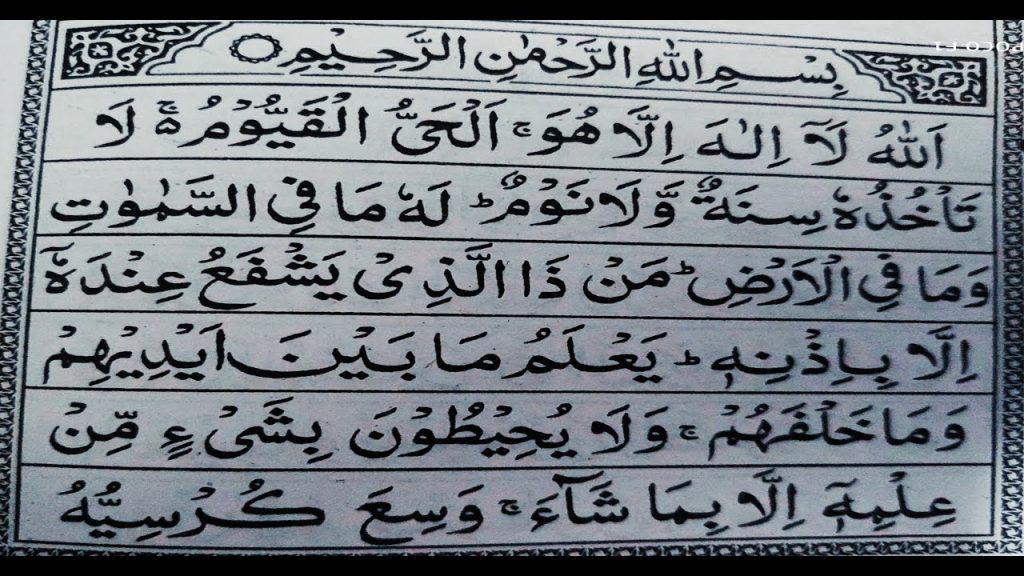 بِسْمِ اللهِ الرَّحْمٰنِ الرَّحِيْمِ
اَللهُ لَاۤ اِلٰهَ اِلَّا هُوَ ۚ اَلْحَیُّ الْقَيُّوْمُ ۚ۬ لَا
تَاْخُذُهٗ سِنَةٌ وَّلَا نَوْمٌ ؕ لَهٗ مَا فِی السَّمٰوٰتِ
وَمَا فِی الْاَرْضِ ؕ مَنْ ذَا الَّذِیْ يَشْفَعُ عِنْدَهٗۤ
اِلَّا بِاِذْنِهٖ ؕ يَعْلَمُ مَا بَيْنَ اَيْدِيْهِمْ
وَمَا خَلْفَهُمْ ۚ وَلَا يُحِيْطُوْنَ بِشَیْءٍ مِّنْ
عِلْمِهٖۤ اِلَّا بِمَا شَآءَ ۚ وَسِعَ كُرْسِيُّهُ